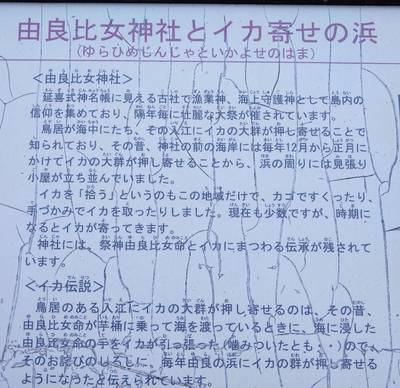 由良比女神社とイカ寄せの浜
(ゆらひめじんじゃといかよせのはま)
<由良比女神社>
延喜式神名帳に見える古社で漁業神、海上守護神として島内の
信仰を集めており、隔年毎に壮麗な大祭が催されています。
鳥居が海中にたち、その入江にイカの大群が押し寄せることで
知られており、その昔、神社の前の海岸には毎年12月から正月に
かけてイカの大群が押し寄せることから、浜の周りには見張り
小屋が立ち並んでいました。
イカを「拾う」というのもこの地域だけで、カゴですくったり、
手づかみでイカを取ったりしました。現在も少数ですが、時期に
なるとイカが寄ってきます。
神社には、祭神由良比女命とイカにまつわる伝承が残されて
います。
<イカ伝説>
鳥居のある入江にイカの大群が押し寄せるのは、その昔、
由良比女命が芋桶に乗って海を渡っているときに、海に浸した
由良比女命の手をイカが引っ張った(噛みついたとも・・)ので、
そのお詫びのしるしに、毎年由良の浜にイカの群が押し寄せる
ようになったと伝えられています。